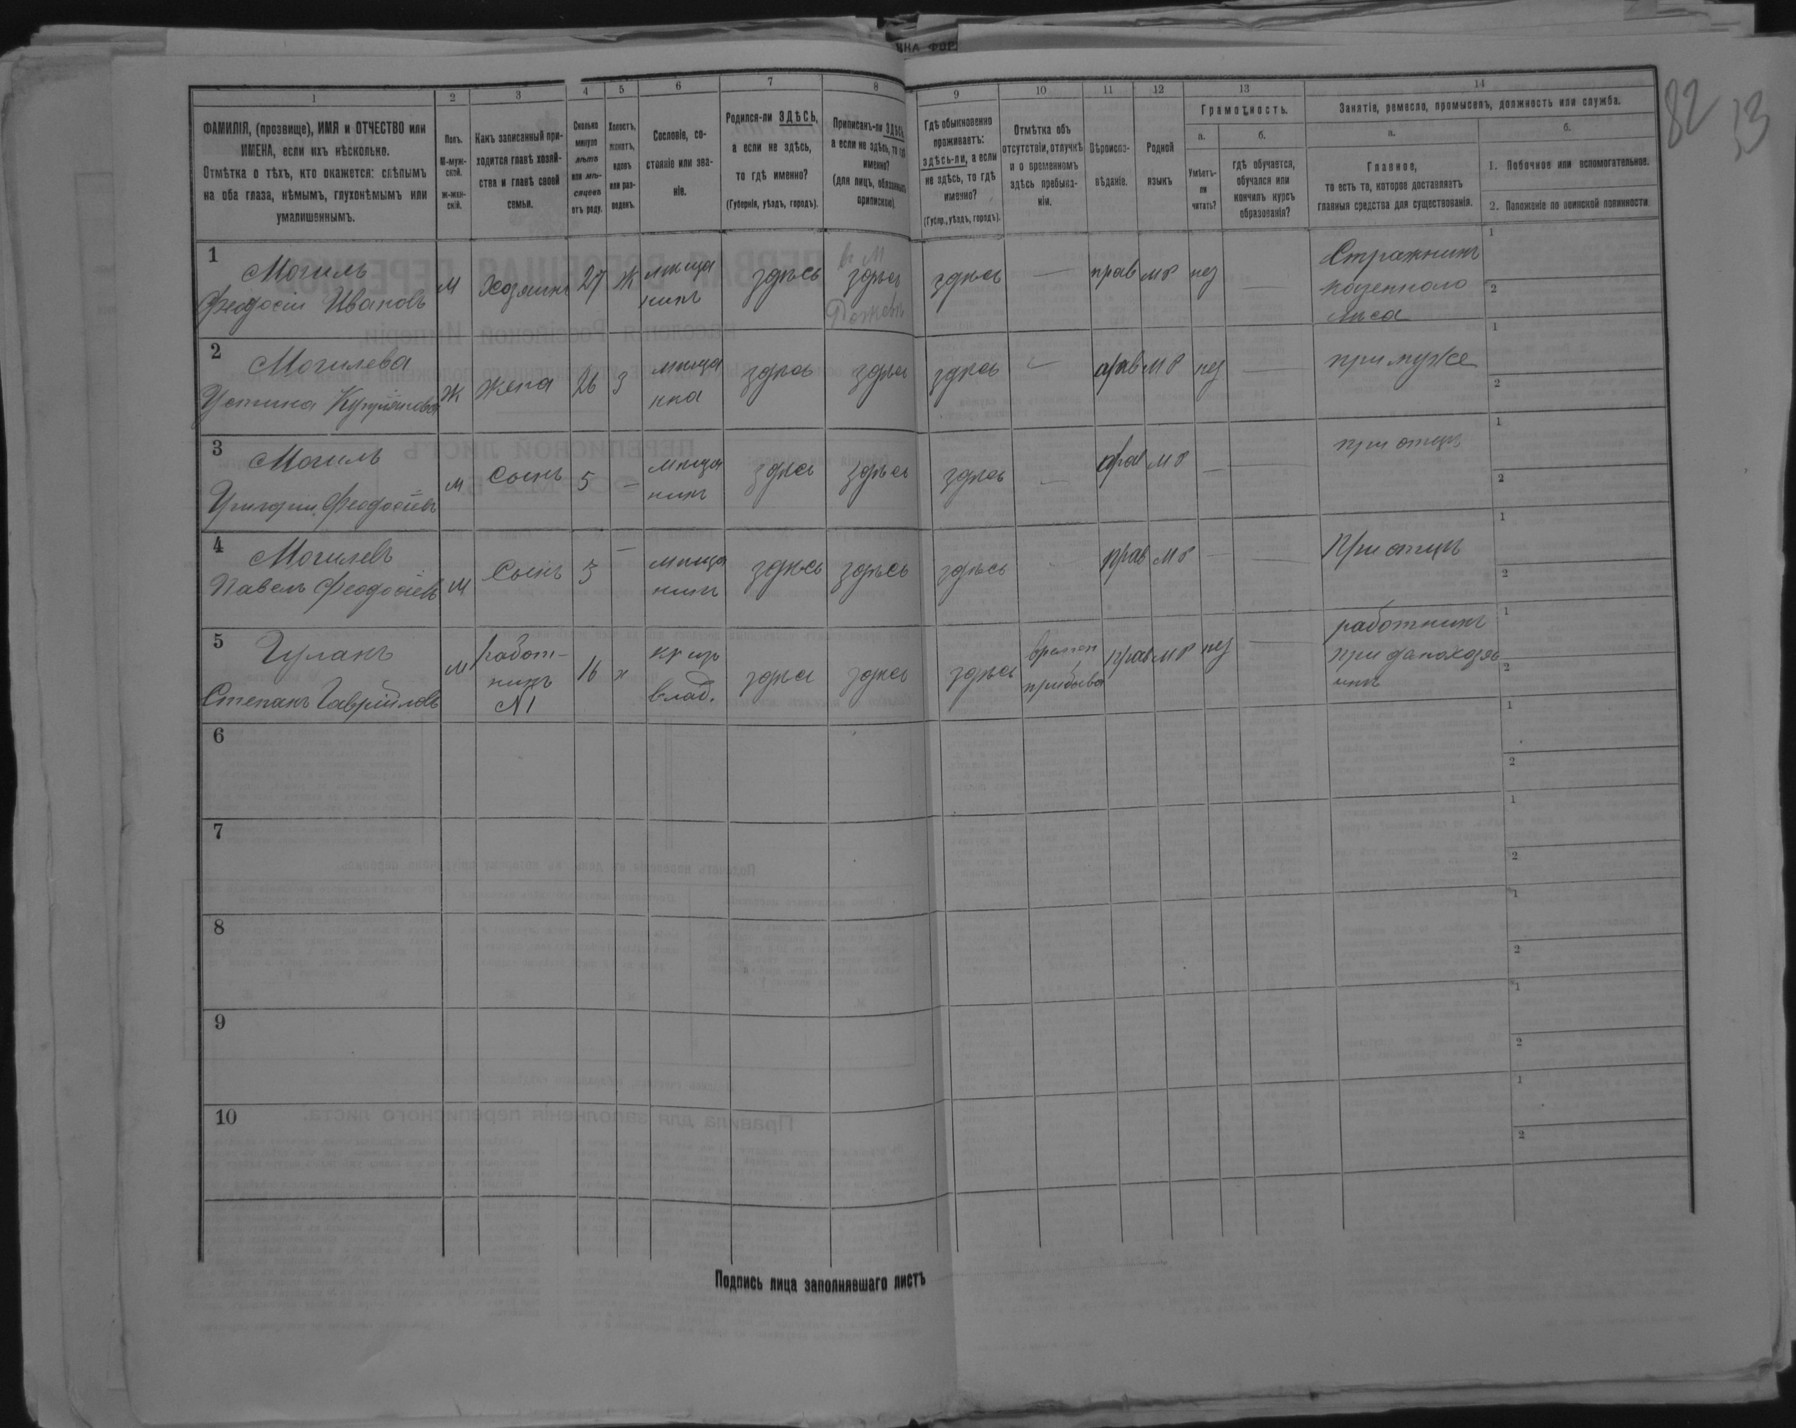 82 33
1 2 3 4 5 6 7 8 9 10 11 12 13 14
ФАМИЛІЯ, (прозвище), ИМЯ и ОТЧЕСТВО или
ИМЕНА, если ихъ нѣсколько.
Отмѣтка о тѣхъ, кто окажется: слѣпымъ
на оба глаза, нѣмымъ, глухонѣмымъ или
умалишеннымъ.
Полъ.
М-муж-
ской.
ж-жен-
скій.
Какъ записанный при-
ходится главѣ хозяй-
ства и главѣ своей
семьи.
Сколько
минуло
лѣтъ
или мѣ-
сяцевъ
отъ роду.
Холостъ,
женатъ,
вдовъ
или раз-
веденъ.
Сословіе, со-
стояніе или зва-
ніе.
Родился-ли ЗДѢСЬ,
а если не здѣсь,
то гдѣ именно?
(Губернія, уѣздъ, городъ).
Приписанъ-ли ЗДѢСЬ,
а если не здѣсь, то гдѣ
именно?
(для лицъ, обязанныхъ
припискою).
Гдѣ обыкновенно
проживаетъ:
здѣсь-ли, а если
не здѣсь, то гдѣ
именно?
(Губер., уѣздъ, городъ).
Отмѣтка объ
отсутствіи, отлучкѣ
и о временномъ
здѣсь пребыва-
ніи.
Вѣроиспо-
вѣданіе.
Родной
языкъ
Грамотность.
а. б.
Умѣетъ-
ли
читать?
гдѣ обучается,
обучался или
кончилъ курсъ
образованія?
Занятіе, ремесло, промыселъ, должность или служба.
а. б.
Главное,
то есть то, которое доставляетъ
главныя средства для существованія.
1. Побочное или вспомогательное.
2. Положеніе по воинской повинности.
1 Могиль
Феодосій Ивановъ
М Хозяинъ 27 Ж мѣща
нинъ
здѣсь здѣсь здѣсь — прав мр нез —
Стражникъ
казеннаго
лѣса
1
2
2 Могилева
Устина
Ж жена 26 З мѣща
нка
здѣсь здѣсь здѣсь — прав мр нез —
при муже
1
2
3 Могиль
Григорій Феодосіевъ
М Сынъ 5 — мѣща
нинъ
здѣсь здѣсь здѣсь — прав мр — —
при отцѣ
1
2
4 Могилевъ
Павелъ Феодосіевъ
М Сынъ 3 — мѣща
нинъ
здѣсь здѣсь здѣсь прав мр — —
При отцѣ
1
2
5
Степанъ Гавриловъ
М работ-
никъ
N1
16 х
влад.
здѣсь здѣсь здѣсь времен
прибыва
прав мр нез —
работникъ
при
1
2
6
1
2
7
1
2
8
1
2
9
1
2
10
1
2
Подпись лица заполнявшаго листъ